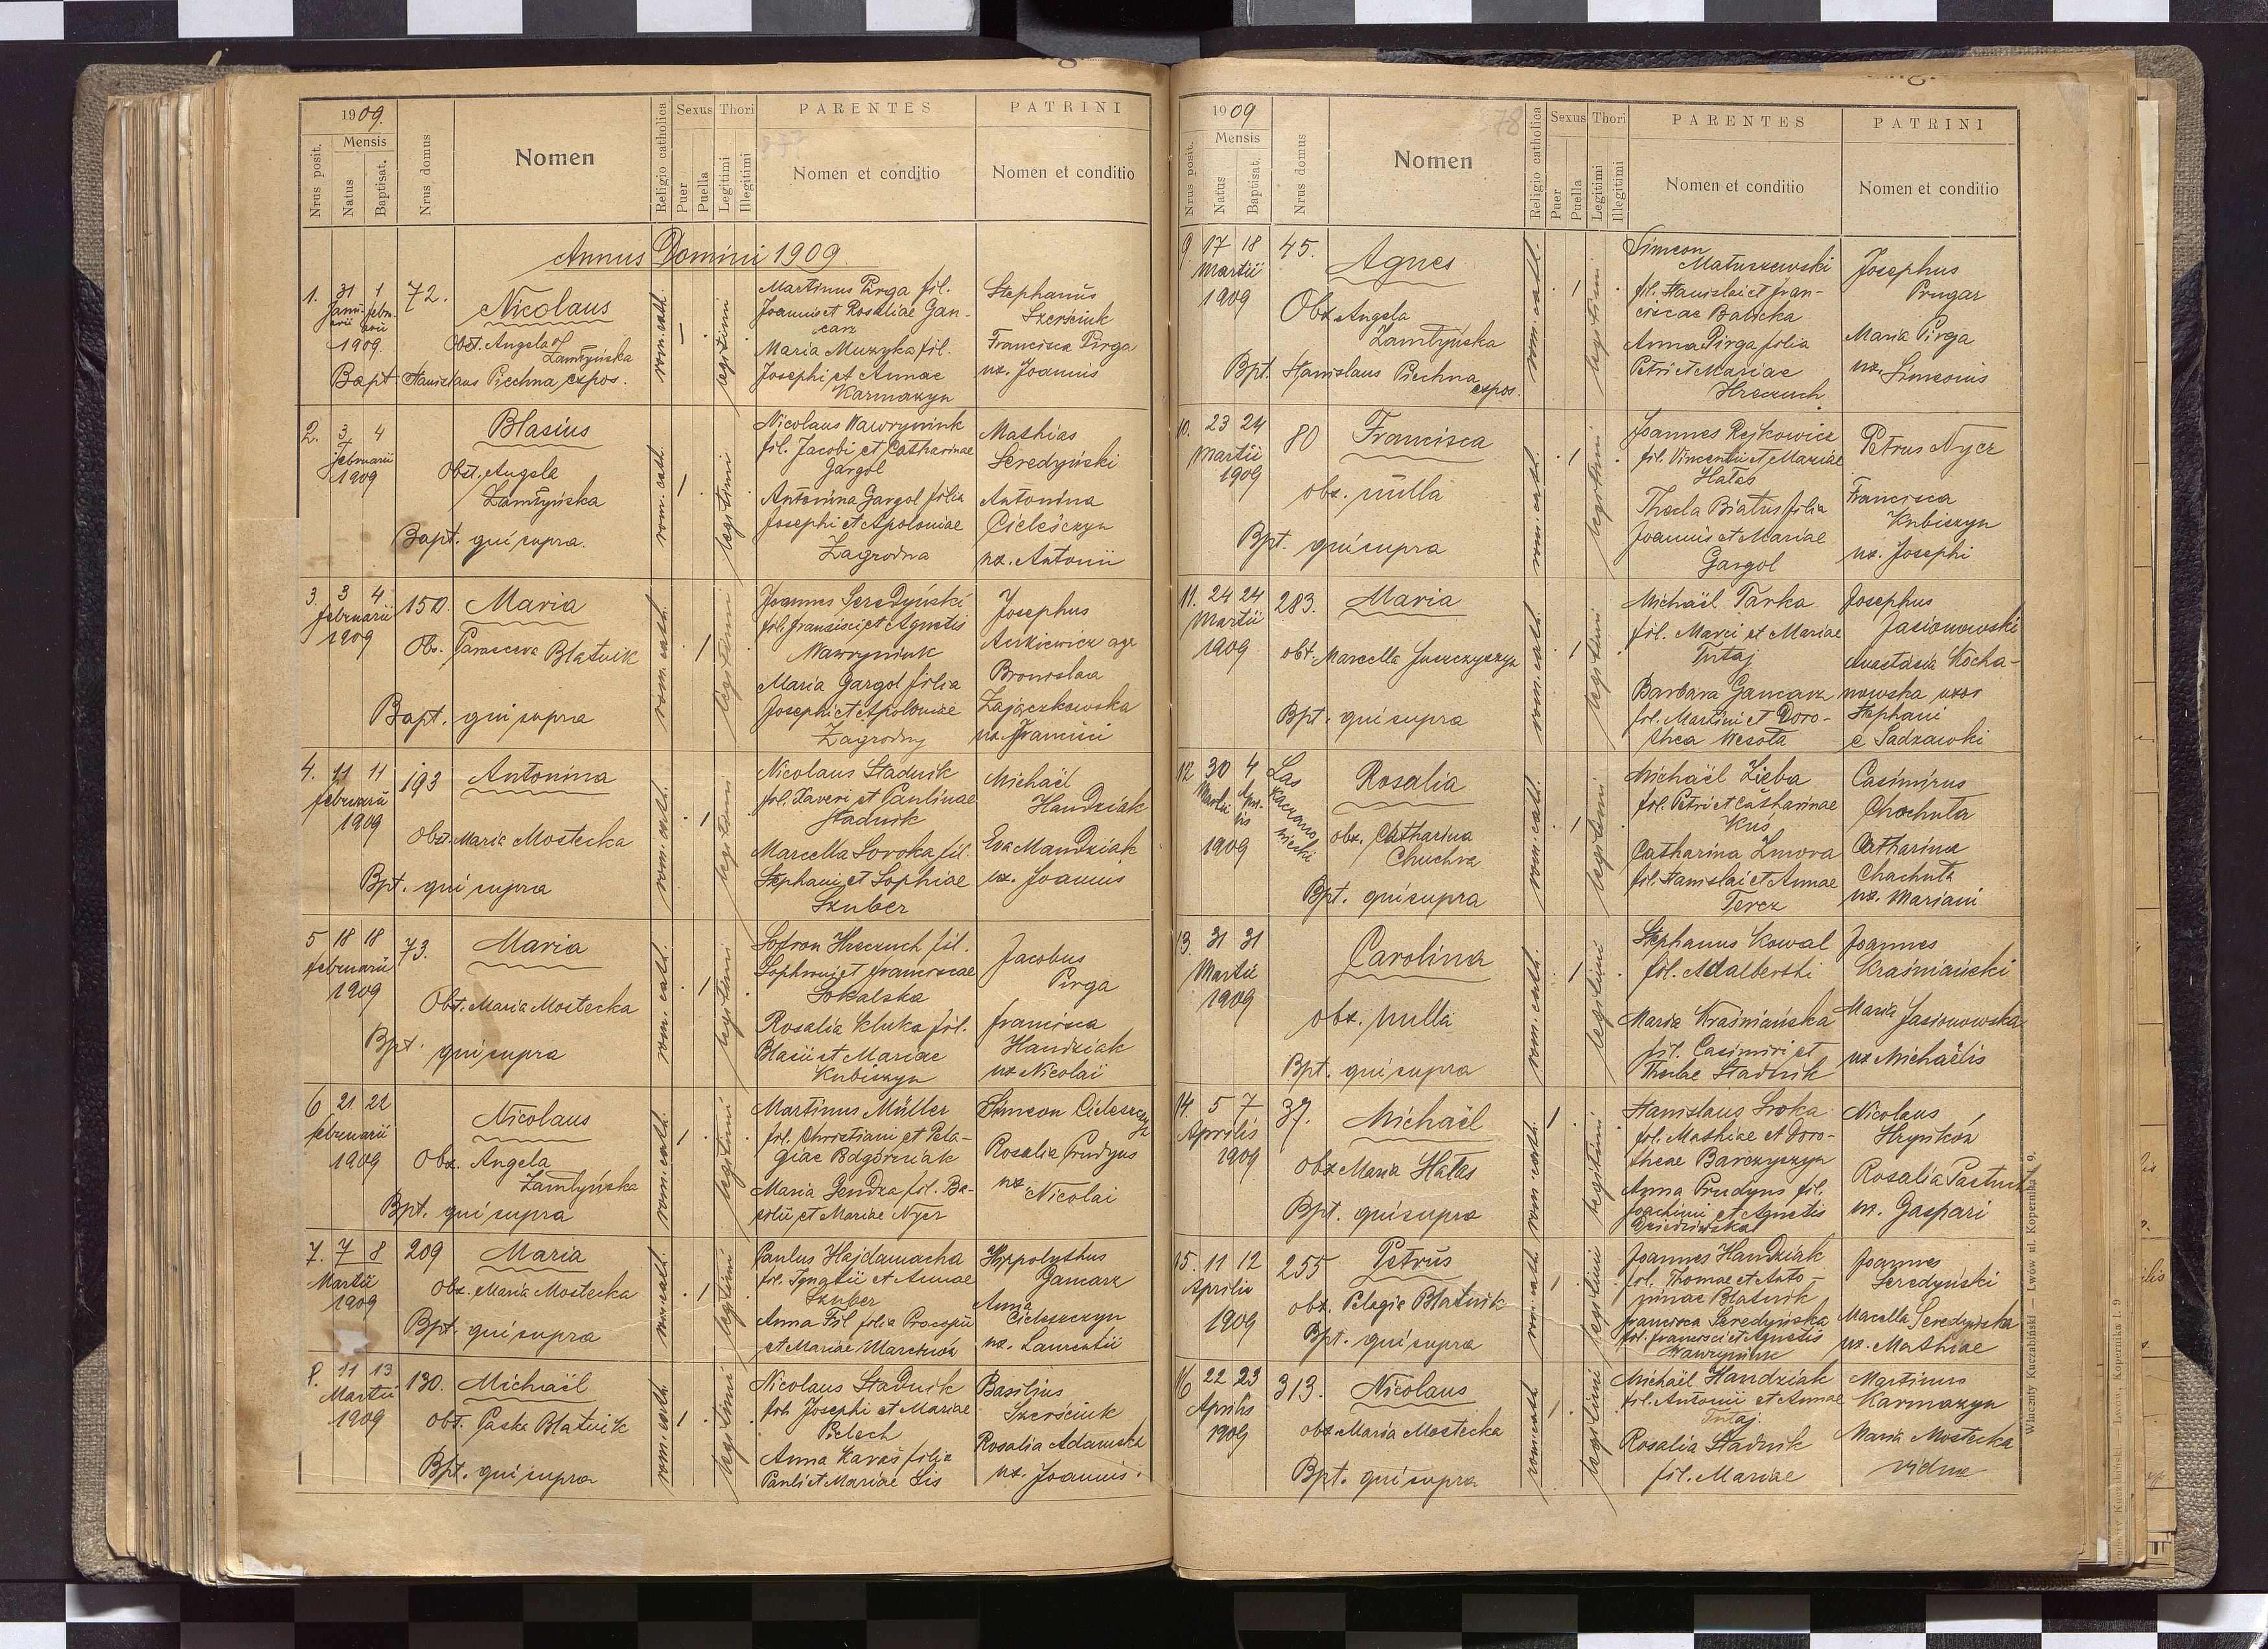 1909.
Nrus posit.
Mensis
Natus
Baptisat.
Nrus domus
Nomen
Religio catholica
Sexus
Puer
Puella
Thori
Legitimi
Illegitimi
PARENTES
Nomen et conditio
PATRINI
Nomen et conditio
Annus Domini 1909.
1. 31 1 72.
Januarii februarii
1909.
Nicolaus
Obst. Angela
Zamłyńska
Bapt Stanislaus Piechna, expos.
rom. cath.
legitimi
Martinus Pirga fil.
Joannis et Rosaliae Gan-
carz
Maria Muzyka fil.
Josephi et Annae
Karmazyn
Stephanus
Szerściuk
Francisca Pirga
ux. Joannis
2. 3 4
februarii
1909
Blasius
Obst. Angela
Zamłyńska
Bapt. qui supra.
rom. cath.
legitimi
Nicolaus Wawryniuk
fil. Jacobi et Catharinae
Gargol
Antonina Gargol filia
Josephi et Apoloniae
Zagrodna
Mathias
Seredyński
Antonina
Cieleśczyn
ux. Antonii
3. 3 4 150.
februarii
1909
Maria
Obs. Parasceva Blatnik
Bapt. qui supra
rom. cath.
legitimi
Joannes Seredyński
fil. Francisci et Agnetis
Wawryniuk
Maria Gargol filia
Josephi et Apoloniae
Zagrodny
Josephus
Bronislaa
Zajączkowska
ux. Francisci
4. 11 11 193
februarii
1909
Antonina
Obst. Maria Mostecka
Bpt. qui supra
rom. cath.
legitimi
Nicolaus Stadnik
fil. Xaveri et Paulinae
Stadnik
Marcella Soroka fil.
Stephani et Sophiae
Szuber
Michaël
Handziak
Eva Mandziak
ux. Joannis
5 18 18 73.
februarii
1909
Maria
Obst. Maria Mostecka
Bpt. qui supra
rom. cath.
legitimi
Sofron Hreczuch fil.
Sophroni et Franciscae
Sokalska
Rosalia Kluka fil.
Blasii et Mariae
Kubiszyn
Jacobus
Pirga
Francisca
Handziak
ux Nicolai
6 21 22
februarii
1909
Nicolaus
Obs. Angela
Zamłyńska
Bpt. qui supra
rom. cath.
legitimi
Martinus Müller
fil. Christiani et Pela-
giae Podgórniak
Maria Gendza fil. Ba-
silii et Mariae Nycz
Simeon
Rosalia Prudyus
ux Nicolai
7. 7 8 209
Martii
1909
Maria
Obs. Maria Mostecka
Bpt. qui supra
rom. cath.
legitimi
Paulus Hajdamacha
fil. Ignatii et Annae
Szuber
Anna Fil filia Procopii
et Mariae Marciniów
Hippolythus
Gancarz
Anna
Cieleszczyn
ux. Laurentii
8. 11 13 130.
Martii
1909
Michaël
obst. Paska Blatnik
Bpt. qui supra
rom. cath.
legitimi
Nicolaus Stadnik
fil. Josephi et Mariae
Pielech
Anna Karaś filia
Pauli et Mariae Lis
Basilius
Szerściuk
Rosalia Adamska
ux. Joannis.
1909
Nrus posit.
Mensis
Natus
Baptisat.
Nrus domus
Nomen
378
Religio catholica
Sexus
Puer
Puella
Thori
Legitimi
Illegitimi
PARENTES
Nomen et conditio
PATRINI
Nomen et conditio
9. 17 18 45.
Martii
1909
Agnes
Obs. Angela
Zamłyńska
Bpt. Stanislaus Piechna
expos.
rom. cath.
legitimi
Simeon
Matuszewski
fil. Stanislai et Fran-
ciscae Babicka
Anna Pirga filia
Petri et Mariae
Hreczuch
Josephus
Prugar
Maria Pirga
ux. Simeonis
10. 23 24 80
Martii
1909
Francisca
obs. nulla
Bpt. qui supra
rom. cath.
legitimi
Joannes Rejkowicz
fil. Vincentii et Mariae
Hałas
Thecla Białus filia
Joannis et Mariae
Gargol
Petrus Nycz
Francisca
Kubiszyn
ux. Josephi
11. 24 24 283.
Martii
1909
Maria
obst. Marcella Juszczyszyn
Bpt. qui supra
rom. cath.
legitimi
Michaël Tarka
fil. Marci et Mariae
Tutaj
Barbara Gancarz
fil. Martini et Doro-
thea Wesoła
Josephus
Jasionowski
Anastasia Kocha-
nowska uxor
Stephani
e Sadzawki
12 30 4 Las
Martii Aprilis
1909
Rosalia
obs. Catharina
Chuchra
Bpt. qui supra
rom. cath.
legitimi
Michaël Zięba
fil. Petri et Catharinae
Kuś
Catharina Zmora
fil. Stanislai et Annae
Tercz
Casimirus
Chochuła
Catharina
Chachuła
ux. Mariani
13. 31 31
Martii
1909
Carolina
obs. nulla
Bpt. qui supra
rom. cath.
legitimi
Stephanus Kowal
fil. Adalberthi
Maria Kraśniańska
fil. Casimiri et
Theclae Stadnik
Joannes
Kraśniański
Maria Jasionowska
ux Michaëlis
14. 5 7 37.
Aprilis
1909
Michaël
obs Maria Hałas
Bpt. qui supra
rom. cath.
legitimi
Stanislaus Sroka
fil. Mathiae et Doro-
theae Barczyszyn
Anna Prudyus fil.
Joachimi et Agnetis
Nicolaus
Hryńków
Rosalia
ux. Gaspari
15. 11 12 255
Aprilis
1909
Petrus
obs. Pelagie Blatnik
Bpt. qui supra
rom. cath.
legitimi
Joannes Handziak
fil. Thomae et Anto-
ninae Blatnik
Francisca Seredyńska
fil. Francisci et Agnetis
Wawryniuk
Joannes
Seredyński
Macella Seredyńska
ux. Mathiae
16 22 23 313.
Aprilis
1909
Nicolaus
obs. Maria Mostecka
Bpt. qui supra
rom. cath.
legitimi
Michaël Handziak
fil. Antonii et Annae
Tutaj.
Rosalia Stadnik
fil. Mariae
Martinus
Karmazyn
Maria Mostecka
vidua
Wincenty Kuczabiński — Lwów ul. Kopernika 9.